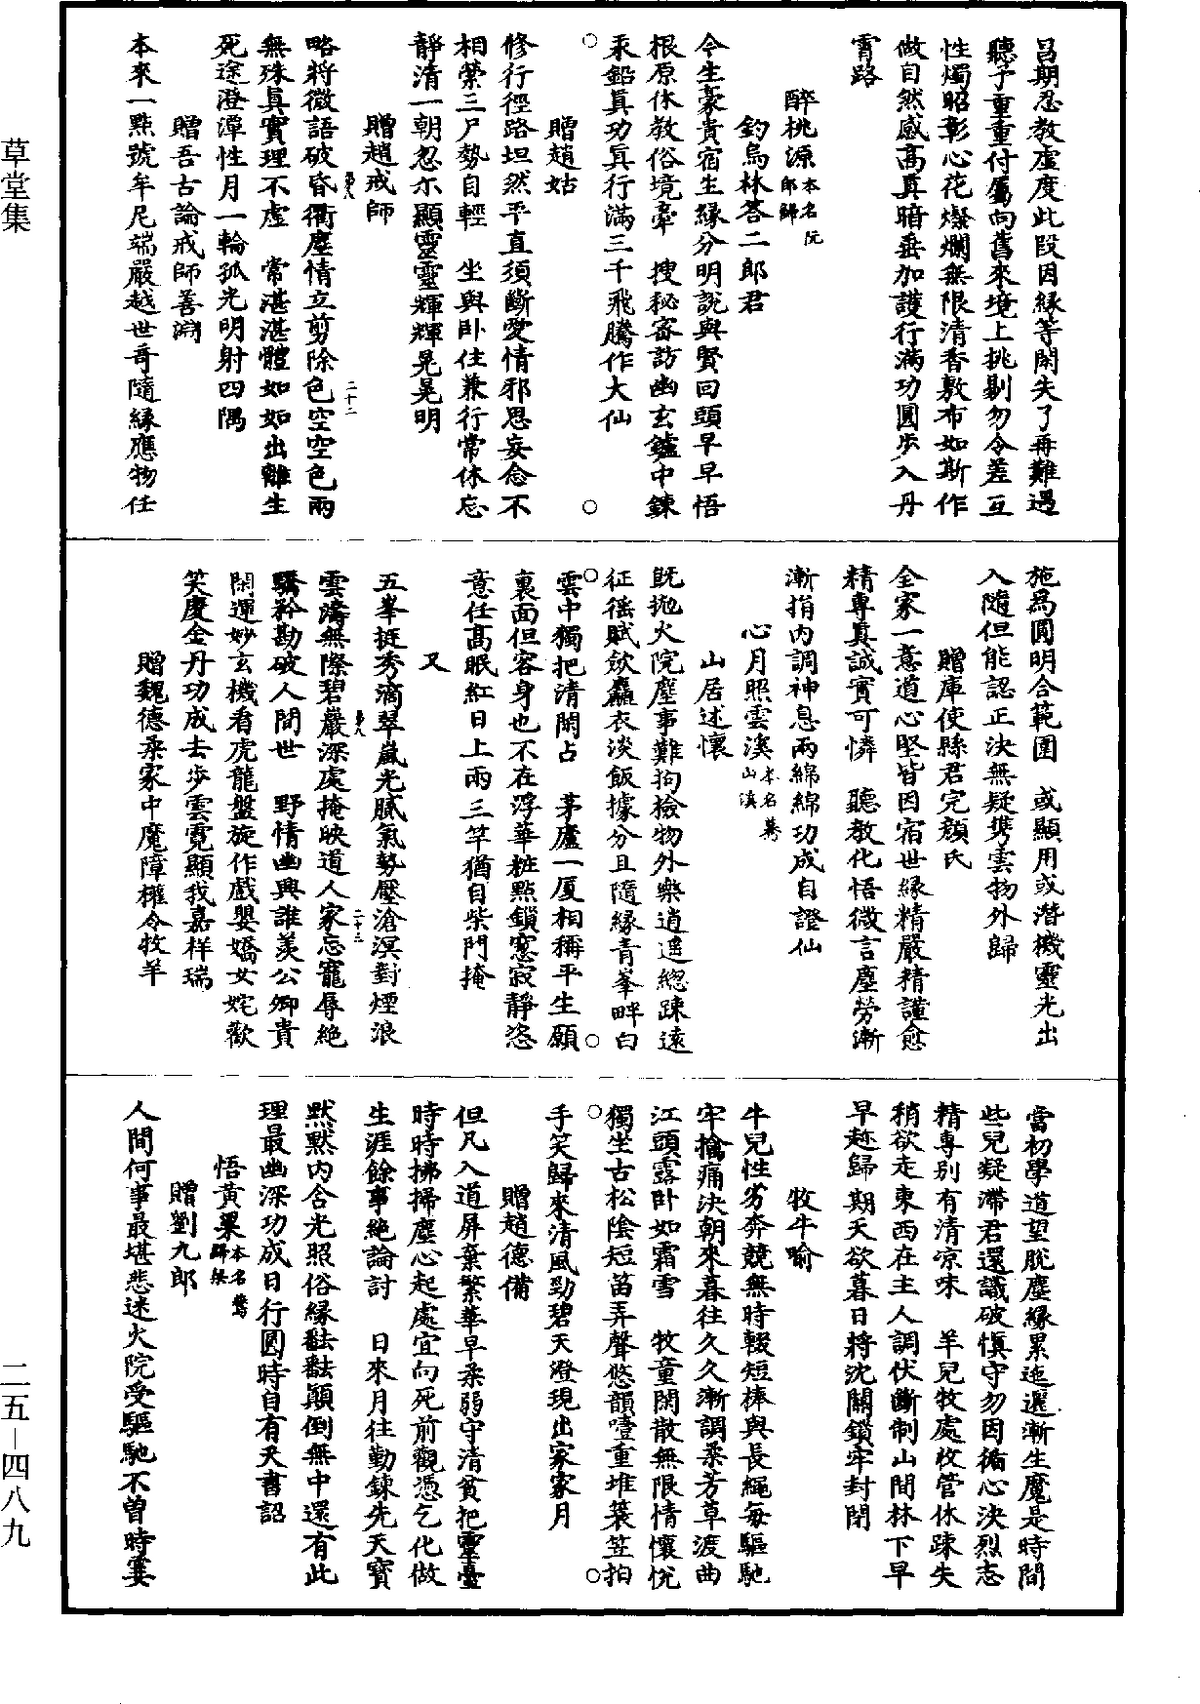 呂期忍教虛度此段因緣等閑失了再難遇
聽予重重付屬向舊來境上挑剔勿令差互
性燭昭彰心花燦爛無限清香敷布如斯作
做自然感高真暗垂加護行滿功圓步入丹
霄路
醉桃源本名阮郎歸
釣烏林答二郎君
今生豪貴宿生緣分明說與賢回頭早早悟
根原休教俗境牽　搜秘審訪幽玄鑪中鍊
汞鉛真功真行滿三千飛騰作大仙
贈趙姑
修行徑路坦然平直須斷愛情邪思妄念不
相縈三尸勢自輕　坐與臥住兼行常休忘
靜清一朝忽尒顯靈靈輝輝晃晃明
贈趙戒師
略將微語破昏衢塵情立剪除色空空色兩
無殊真實理不虛　常湛湛體如如出離生
死途澄潭性月一輪孤光明射四隅
贈吾古論戒師善淵
本來一點號牟尼端嚴越世奇隨緣應物任
二十二
施為圓明合範圍　或顯用或潛機靈光出
入隨但能認正決無疑携雲物外歸
贈庫使縣君完顏氏
全家一意道心堅皆因宿世緣精嚴精謹愈
精專真誠實可憐　聽教化悟微言塵勞漸
漸捐內調神息兩綿綿功成自證仙
心月照雲溪本名驀山溪
山居述懷
既拋火院塵事難拘檢物外樂逍遥總疎遠
征徭賦歛麤衣淡飯據分且隨緣青峯畔白
雲中獨把清閑占　茅廬一厦相稱平生願
裏面但容身也不在浮華粧點鎖窻寂靜恣
意任高眠紅日上兩三竿猶自柴門掩
又
五峯挺秀滴翠嵐光膩氣勢壓滄溟對煙浪
雲濤無際碧巖深處掩映道人家忘寵辱絕
驕矜勘破人間世　野情幽興誰羨公卿貴
閑運妙玄機看虎龍盤旋作戲嬰嬌女姹歡
笑慶金丹功成去步雲霓顯我嘉祥瑞
贈魏德柔家中魔障權令牧羊
二十三
當初學道望脫塵緣累迤邐漸生魔是時間
些兒疑滯君還識破慎守勿因循心決烈志
精專別有清凉味　羊兒牧處收管休疎失
稍欲走東西在主人調伏斷制山間林下早
早趂歸期天欲暮日將沈關鎖牢封閉
牧牛喻
牛兒性劣奔競無時輟短棒與長繩每驅馳
牢擒痛決朝來暮往久久漸調柔芳草渡曲
江頭露臥如霜雪　牧童閑散無限情懷悅
獨坐古松陰短笛弄聲悠韻噎重堆簑笠拍
手笑歸來清風勁碧天澄現出家家月
贈趙德備
但凡入道屏棄繁華早柔弱守清貧把靈臺
時時拂掃塵心起處宜向死前觀憑乞化做
生涯餘事絕論討　日來月往勤鍊先天寶
默默內含光照俗緣〓〓顛倒無中還有此
理最幽深功成日行圓時自有天書詔
悟黃粱本名燕歸梁
贈劉九郎
人間何事最堪悲迷火院受驅馳不曾時霎
草堂集
二五—四八九